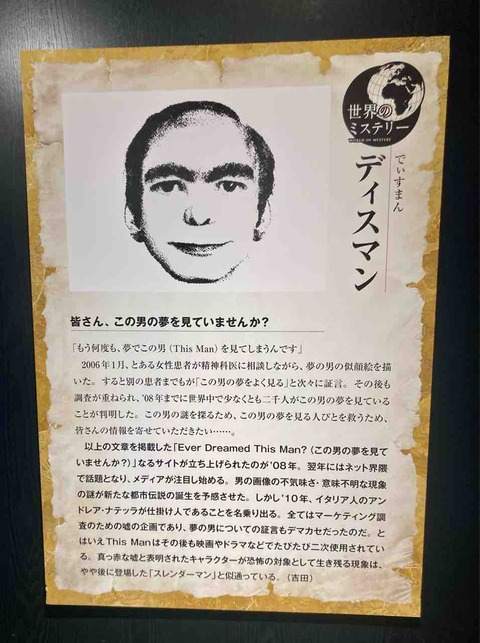 世界の
ミステリー
WORLD OF MYSTERY
でぃすまん
ディスマン
皆さん、この男の夢を見ていませんか?
「もう何度も、夢でこの男(This Man)を見てしまうんです」
2006年1月、とある女性患者が精神科医に相談しながら、夢の男の似顔絵を描
いた。すると別の患者までもが「この男の夢をよく見る」と次々に証言。その後も
調査が重ねられ、'08年までに世界中で少なくとも二千人がこの男の夢を見ている
ことが判明した。この男の謎を探るため、この男の夢を見る人びとを救うため、
皆さんの情報を寄せていただきたい……。
以上の文章を掲載した「Ever Dreamed This Man?(この男の夢を見て
いませんか?)」なるサイトが立ち上げられたのが'08年。翌年にはネット界隈
で話題となり、メディアが注目し始める。男の画像の不気味さ・意味不明な現象
の謎が新たな都市伝説の誕生を予感させた。しかし'10年、イタリア人のアン
ドレア・ナテッラが仕掛け人であることを名乗り出る。全てはマーケティング調
査のための嘘の企画であり、夢の男についての証言もデマカセだったのだ。と
はいえThis Manはその後も映画やドラマなどでたびたび二次使用されてい
る。真っ赤な嘘と表明されたキャラクターが恐怖の対象として生き残る現象は、
やや後に登場した「スレンダーマン」と似通っている。(吉田)